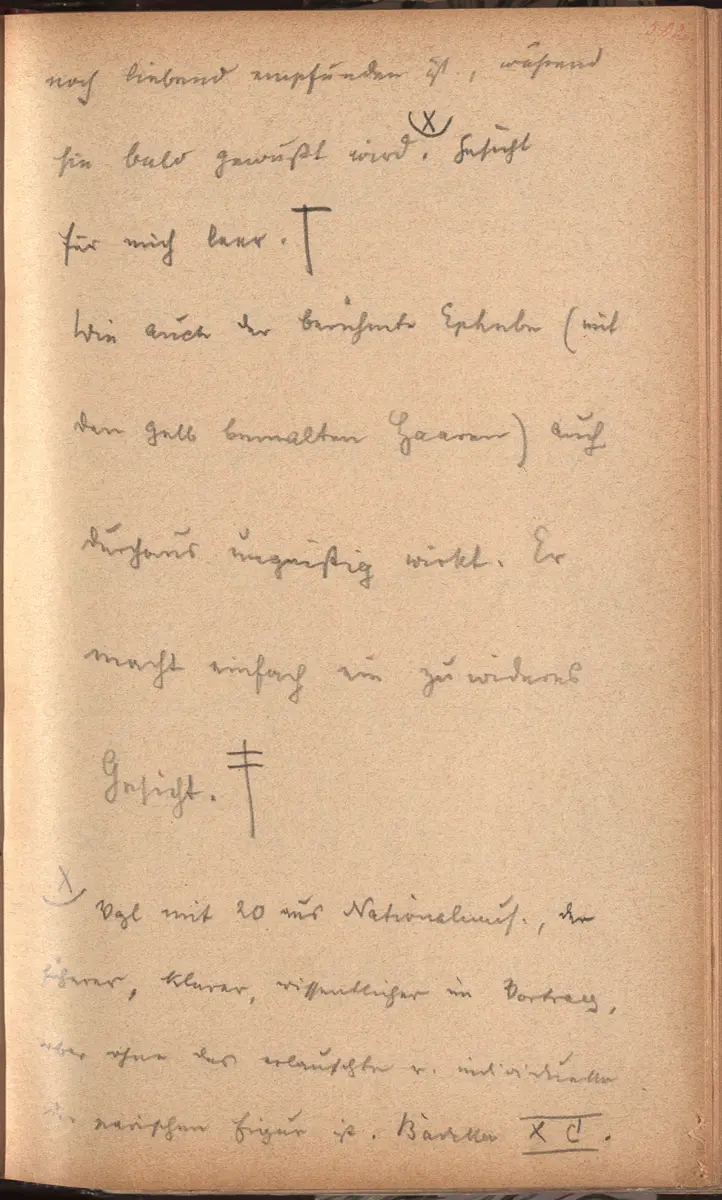 noch liebend empfunden ist, während
sie bald gewußt wird. X Gesicht
für mich leer.
Wie auch der berühmte Ephebe (mit
den gelb bemalten Haaren) auch
durchaus ungeistig wirkt. Er
macht einfach ein zuwideres
Gesicht.
X Vgl mit 20 aus Nationalmus., der
klarer, wissentlicher im Vortrag,
aber ohne das erlauschte u. individuelle
Figur ist. X C.